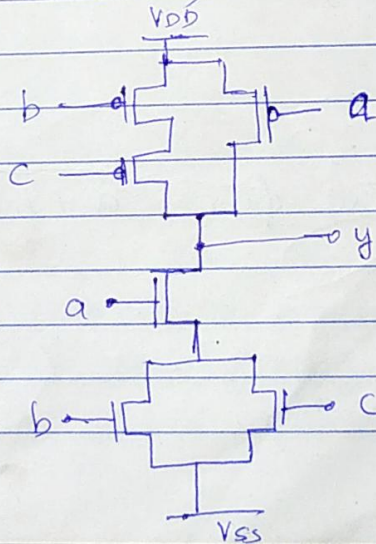 VDD
b a
c
y
a
b c
Vss